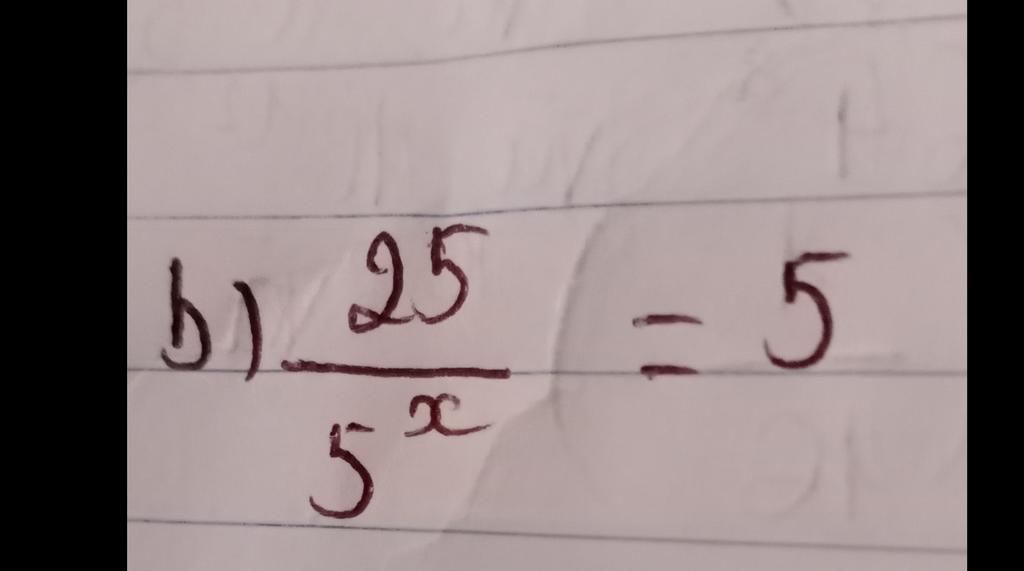 b) 25/5^x = 5